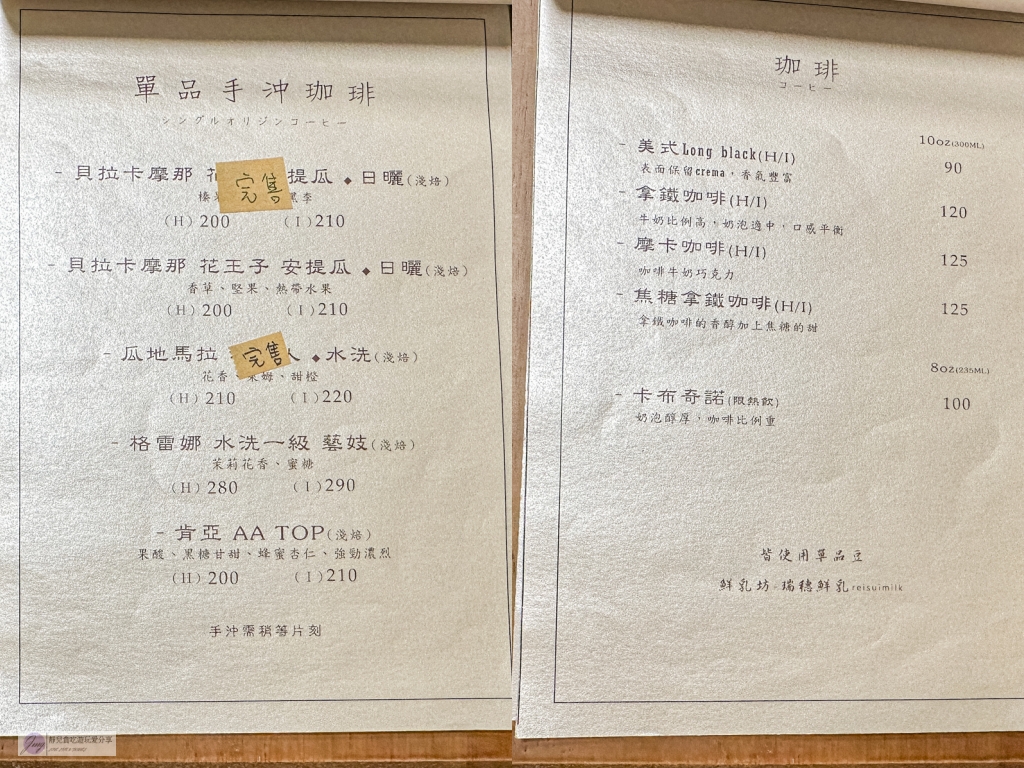 單品手沖珈琲
シングルオリジンコーヒー
- 貝拉卡摩那 提瓜 ◆ 日曬(淺焙)
完售
榛 李
(H) 200 (I) 210
- 貝拉卡摩那 花王子 安提瓜 ◆ 日曬(淺焙)
香草、堅果、熱帶水果
(H) 200 (I) 210
- 瓜地馬拉 人 ◆ 水洗(淺焙)
完售
花香、萊姆、甜橙
(H) 210 (I) 220
- 格雷娜 水洗一級 藝妓(淺焙)
茉莉花香、蜜糖
(H) 280 (I) 290
- 肯亞 AA TOP(淺焙)
果酸、黑糖甘甜、蜂蜜杏仁、強勁濃烈
(H) 200 (I) 210
手沖需稍等片刻
珈琲
コーヒー
10oz(300ML)
- 美式Long black(H/I) 90
表面保留crema，香氣豐富
- 拿鐵咖啡(H/I) 120
牛奶比例高，奶泡適中，口感平衡
- 摩卡咖啡(H/I) 125
咖啡牛奶巧克力
- 焦糖拿鐵咖啡(H/I) 125
拿鐵咖啡的香醇加上焦糖的甜
8oz(235ML)
- 卡布奇諾(限熱飲) 100
奶泡醇厚，咖啡比例重
皆使用單品豆
鮮乳坊-瑞穗鮮乳reisuimilk
靜兒貪吃遊玩愛分享